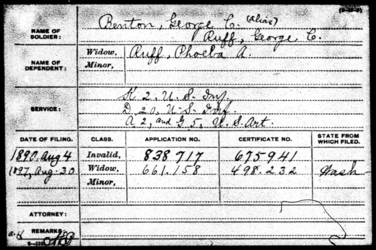 NAME OF SOLDIER:
Benton, George C. (Alias)
Ruff, George C.
NAME OF DEPENDENT:
Widow, Ruff, Phoeba A.
Minor,
SERVICE:
K. 2, U.S. Inf.
D. 20, U.S. Inf.
A. 2, and G. 5, U.S. Art.
DATE OF FILING. CLASS. APPLICATION NO. CERTIFICATE NO. STATE FROM WHICH FILED.
1890, Aug 4 Invalid, 838717 675941
1897, Aug-20 Widow, 661.158 498.232 Wash
Minor,
ATTORNEY:
REMARKS: